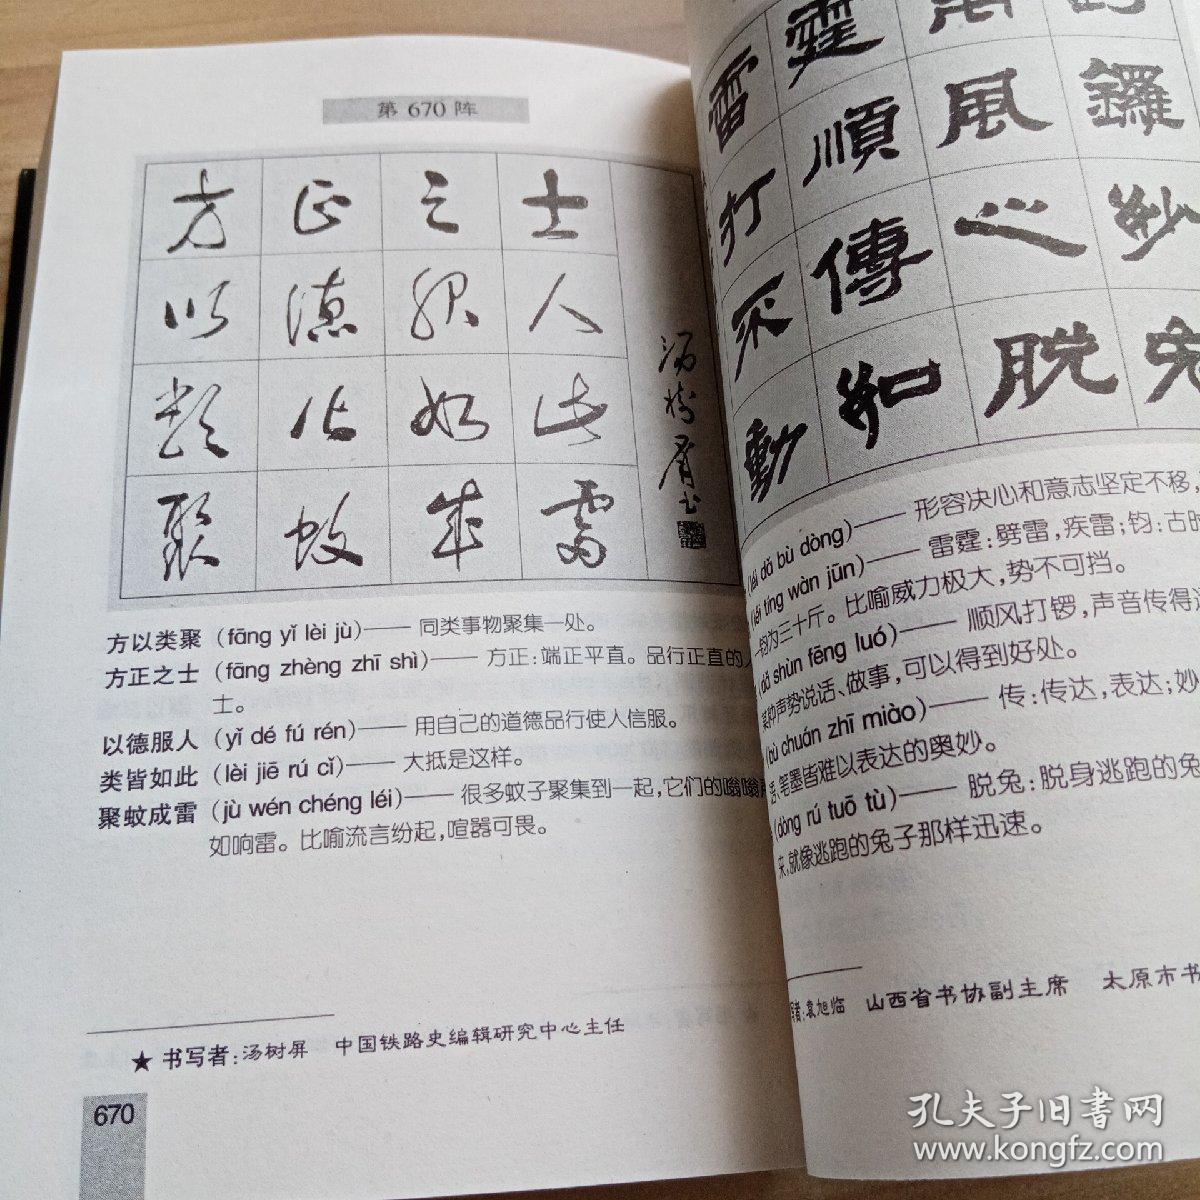 第 670 阵
方正之士
以德服人
类皆如此
聚蚊成雷
汤树屏书
方以类聚 (fāng yǐ lèi jù)—— 同类事物聚集一处。
方正之士 (fāng zhèng zhī shì)—— 方正:端正平直。品行正直的人
士。
以德服人 (yǐ dé fú rén)—— 用自己的道德品行使人信服。
类皆如此 (lèi jiē rú cǐ)—— 大抵是这样。
聚蚊成雷 (jù wén chéng léi)—— 很多蚊子聚集到一起,它们的嗡嗡
如响雷。比喻流言纷起,喧嚣可畏。
★ 书写者:汤树屏 中国铁路史编辑研究中心主任
670
雷霆
打顺风锣
不传心妙
动如脱兔
(léi dǎ bù dòng)—— 形容决心和意志坚定不移,
(léi tíng wàn jūn)—— 雷霆:劈雷,疾雷;钧:古时
钧为三十斤。比喻威力极大,势不可挡。
(dǎ shùn fēng luó)—— 顺风打锣,声音传得
某种声势说话、做事,可以得到好处。
(bù chuán zhī miào)—— 传:传达,表达;妙
语、笔墨皆难以表达的奥妙。
(dòng rú tuō tù)—— 脱兔:脱身逃跑的兔
来,就像逃跑的兔子那样迅速。
写者:袁旭临 山西省书协副主席 太原市书
孔夫子旧书网
www.kongfz.com